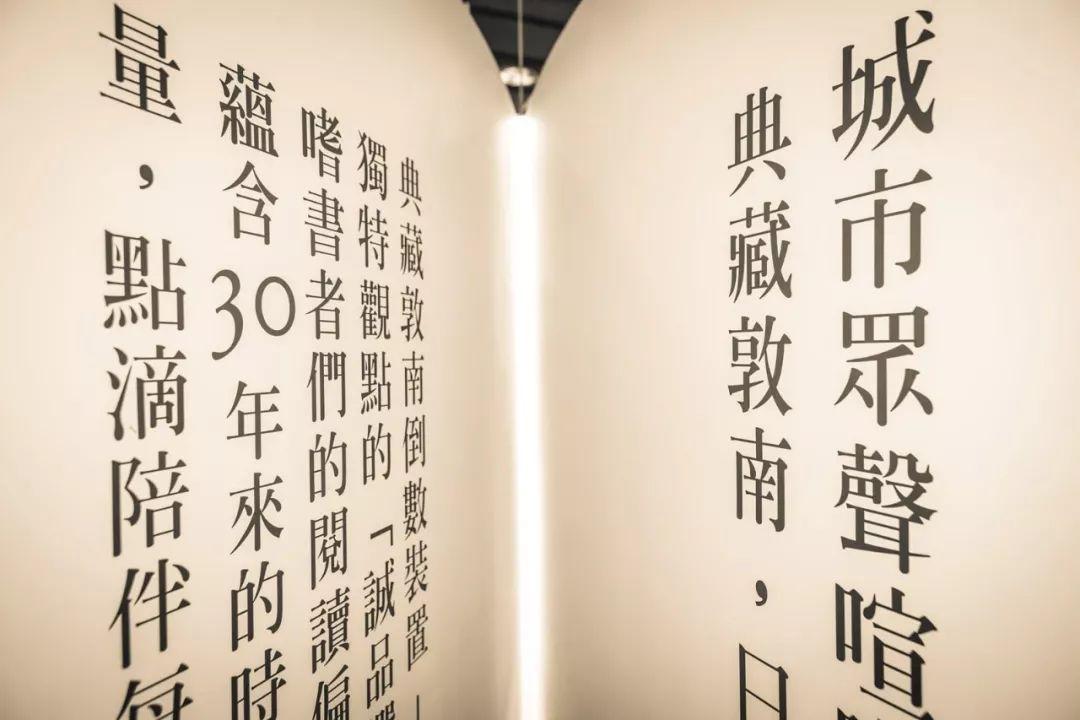 城市眾聲喧
典藏敦南，日
典藏敦南倒數裝置—
獨特觀點的「誠品
嗜書者們的閱讀偏
蘊含30年來的時
量，點滴陪伴每